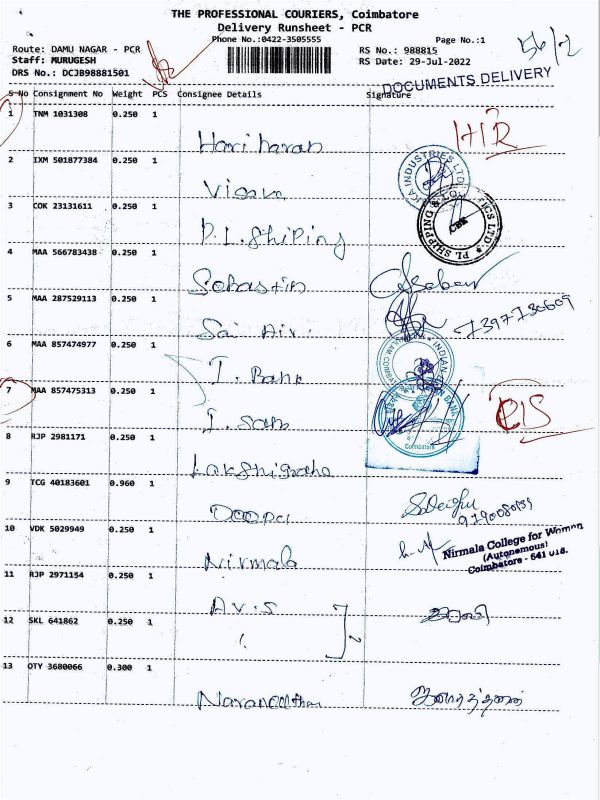 THE PROFESSIONAL COURIERS, Coimbatore
Delivery Runsheet - PCR
Phone No.:0422-3505555
Page No.:1
56/2
Route: DAMU NAGAR - PCR
RS No.: 988815
Staff: MURUGESH
RS Date: 29-Jul-2022
DRS No.: DCJB98881501
DOCUMENTS DELIVERY
S No Consignment No Weight PCS Consignee Details Signature
1 TNM 1031308 0.250 1
Hariharan
2 IXM 501877384 0.250 1
3 COK 23131611 0.250 1
P.L. Shiping
4 MAA 566783438 0.250 1
Sebastin
5 MAA 287529113 0.250 1
Sai
7397130609
6 MAA 857474977 0.250 1
I. Bank
7 MAA 857475313 0.250 1
8 RJP 2981171 0.250 1
Coimbatore
9 TCG 40183601 0.960 1
Deepa
10 VDK 5029949 0.250 1
Nirmala
Nirmala College for Women
(Autonomous)
Coimbatore - 641 018.
11 RJP 2971154 0.250 1
A.V.S
12 SKL 641862 0.250 1
2
13 OTY 3680066 0.300 1